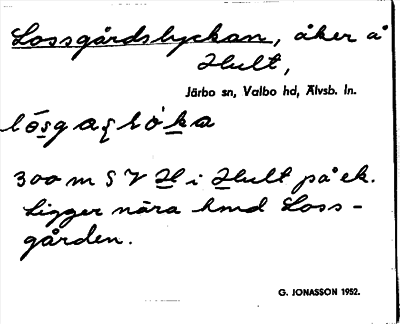 Lossgårdslyckan, åker å
Hult,
Järbo sn, Valbo hd, Älvsb. ln.
300 m S V H i Hult på ek.
Ligger nära hmd Loss-
gården.
G. JONASSON 1952.